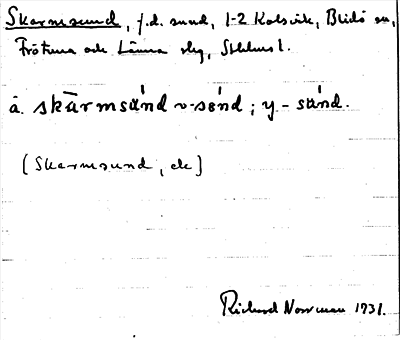 Skarmsund, f.d. sund, 1-2 Kolsvik, Blidö sn,
Frötuna och Länna slg, Sthlms l.
å. skärmsùnd v-sønd; y-sùnd.
[Skarmsund, ek]
Richard Norrman 1931.